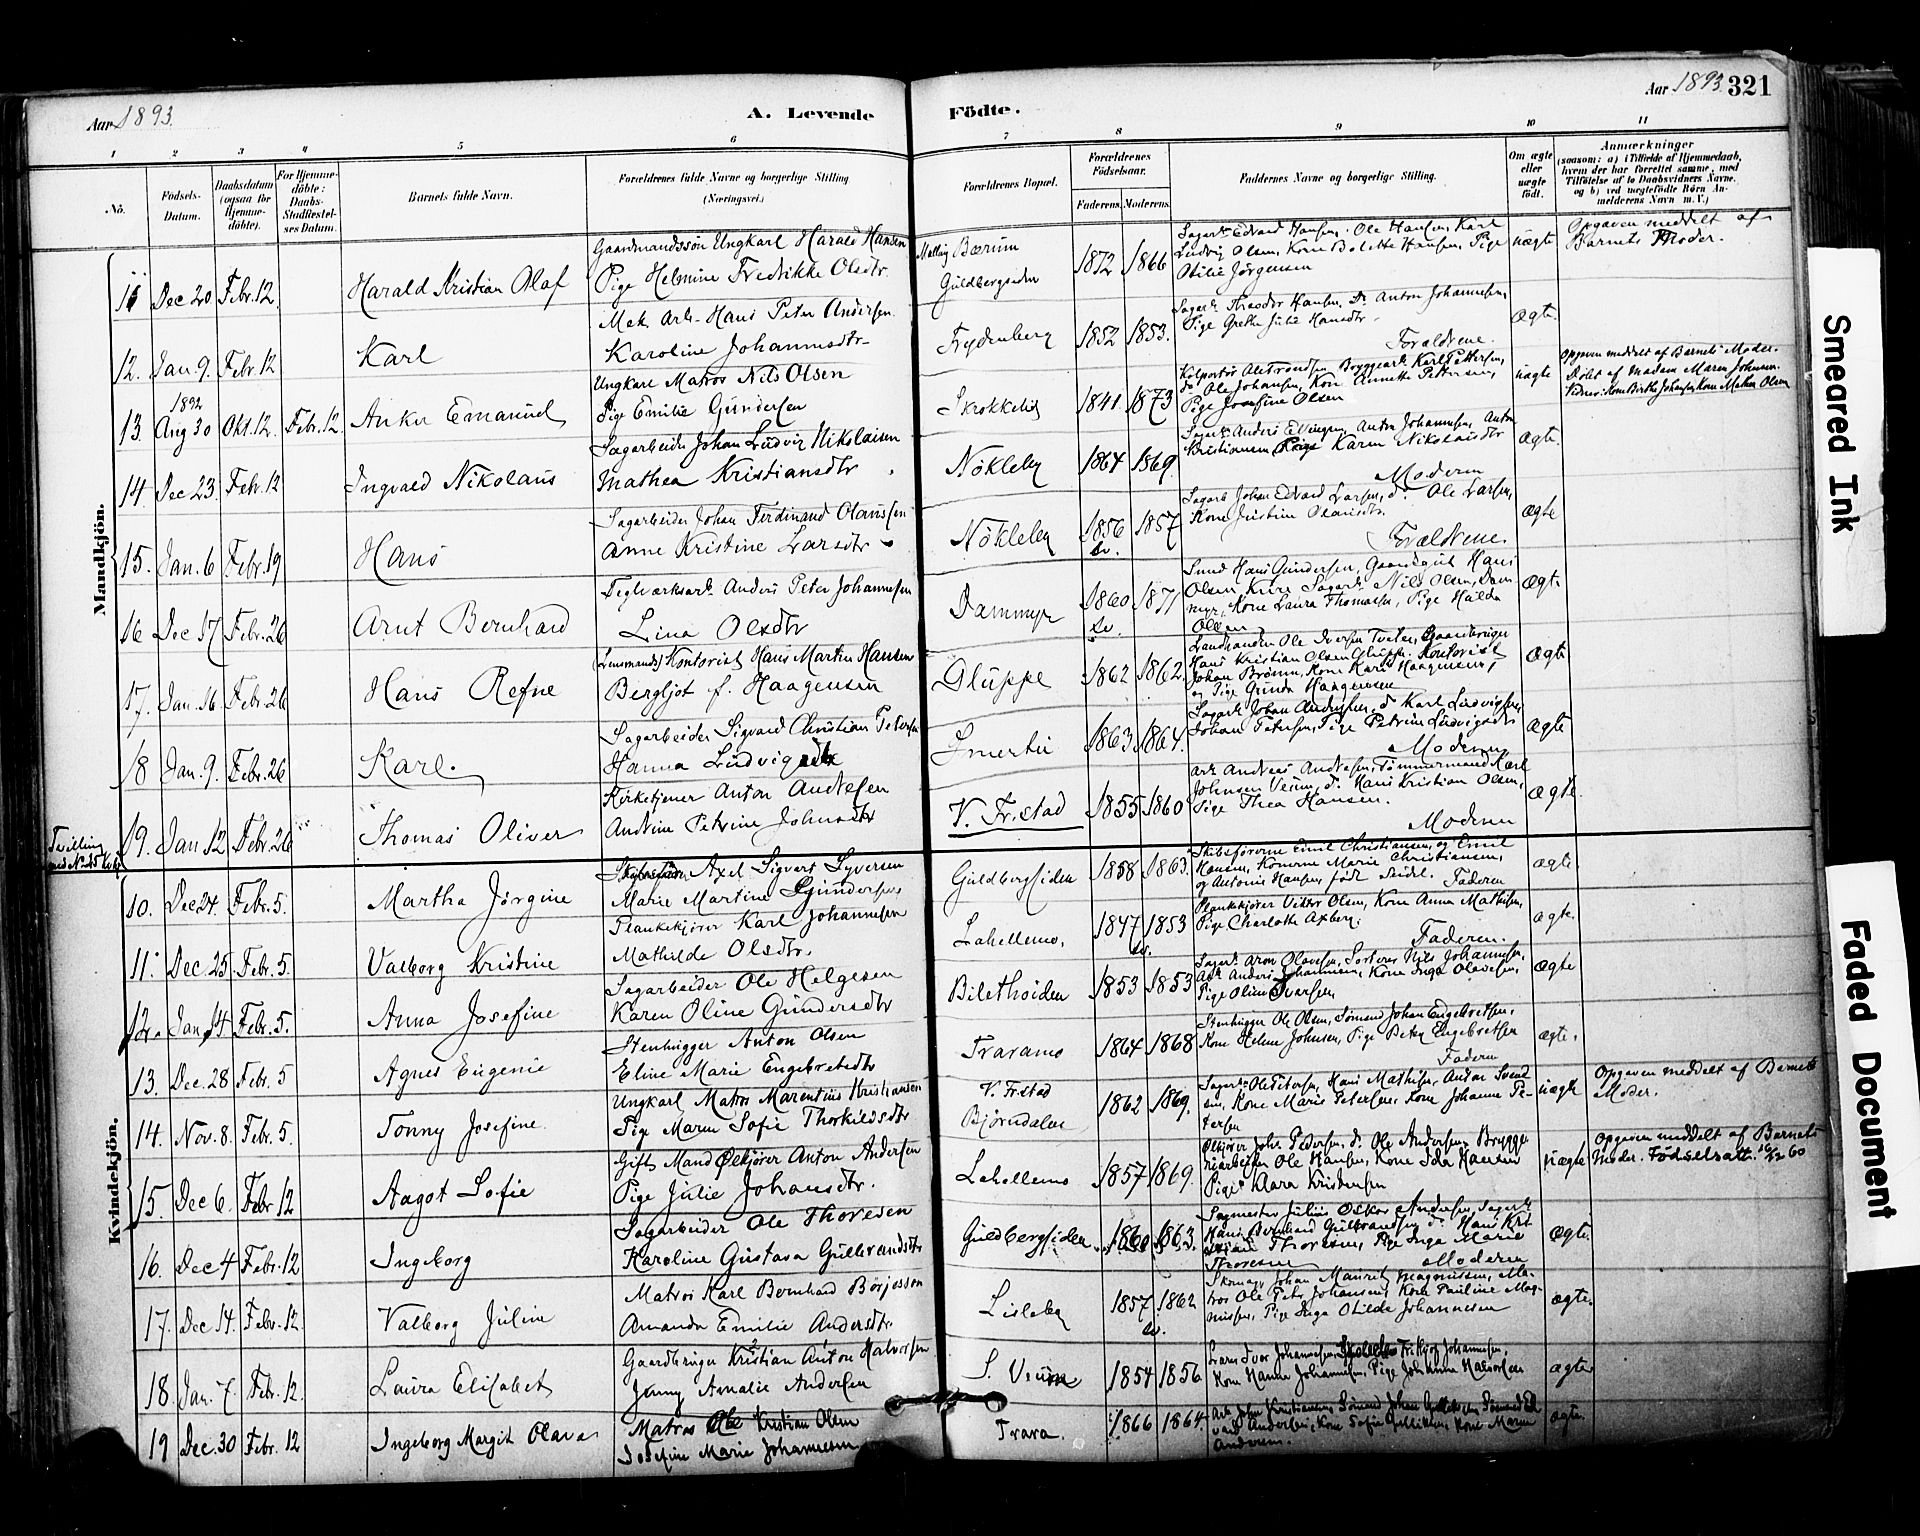 Aar 1893.
A. Levende Födte.
Aar 1893. 321
1 2 3 4 5 6 7 8 9 10 11
No. Födsels-Datum. Daabsdatum (ogsaa for Hjemme-döbte). For Hjemme-döbte: Daabs-Stadfæstel-ses Datum. Barnets fulde Navn. Forældrenes fulde Navne og borgerlige Stilling (Næringsvei.) Forældrenes Bopæl. Forældrenes Födselsaar. Faderens. Moderens. Faddernes Navne og borgerlige Stilling. Om ægte eller uægte födt. Anmærkninger (saasom: a) i Tilfælde af Hjemmedaab, hvem der har forrettet samme, med Tilföielse af to Daabsvidners Navne, og b) ved uægtefödte Börn An-melderens Navn m. V.)
Mandkjön.
Gaardmandssön Ungkarl Harald Hansen
Bærum
Sagarb. Edvard Hansen, Ole Hansen, Karl
Opgaven meddelt af
11 Dec 20. Febr. 12. Harald Kristian Olaf
Pige Helmine Fredrikke Olsdtr.
Guldbergsiden 1872 1866
Ludvig Olsen, Kone Bolette Hansen, Pige
Otilie Jörgensen
uægte
Barnets Moder.
Mek. Arb. Hans Peter Andersen
Sagarb. Theodor Hansen, Do Anton Johannesen,
Pige Grethe Julie Hansdtr.
12. Jan. 9. Febr. 12 Karl
Karoline Johannesdtr
Frydenberg 1852 1853.
Forældrene.
ægte.
Ungkarl Matros Nils Olsen
Bryggearb. Karl Pettersen,
Opgaven meddelt af Barnets Moder.
1892
13. Aug 30 Okt. 12. Febr. 12. Anker Emanuel
Pige Emilie Gundersen
Skrokkelid 1841. 1873
do Ole Johansen, Kone Annette Pettersen,
Pige Josefine Olsen
uægte
Döbt af Madam Maren Johnsen.
Vidner: Kone Birthe Johansen, Kone Maren Olsen
Sagarbeider Johan Ludvig Nikolaisen
Sagarb. Anders Ellingsen, Anton Johannesen, Anton
Kristiansen, Pige Karen Nikolaisdtr
14. Dec 23. Febr. 12 Ingvald Nikolaus
Mathea Kristiansdtr
Nökleby 1864 1869.
Moderen
ægte.
Sagarbeider Johan Ferdinand Olaussen
Sagarb. Johan Edvard Larsen, do Ole Larsen,
Kone Justine Olausdtr.
15. Jan. 6 Febr. 19 Hans
Anne Kristine Larsdtr
Nökleby 1856 1857
Forældrene.
ægte
Teglværksarb. Anders Peter Johannesen
Smed Hans Gundersen, Gaardsgut Hans
Olsen Kure, Sagarb. Nils Olsen, Dam-
myr, Kone Laura Thomasen, Pige Hulda
Olsen
16 Dec 17 Febr. 26 Arnt Bernhard
Lina Olsdtr
Dammyr 1860 1871
ægte
(Lensmands) Kontorist Hans Martin Hansen
Landhandler Ole Iversen Tveter, Gaardbruger
Hans Kristian Olsen Gluppe, Kontorist
Johan Brönn, Kone Karen Haagensen,
og Pige Gunda Haagensen
17. Jan. 16. Febr. 26 Hans Refne
Bergljot f. Haagensen
Gluppe 1862 1862.
ægte
Sagarbeider Sigvard Christian Petersen
Sagarb. Johan Andersen, do Karl Ludvigsen,
Johan Petersen, Pige Petrine Ludvigsdtr
18 Jan. 9. Febr. 26 Karl.
Hanna Ludvigsdtr
Smertu 1863 1864.
Moderen
ægte
Kirketjener Anton Andresen
Arb. Andreas Andresen, Tömmermand Karl
Johnsen Veum, do Hans Kristian Olsen,
Pige Thea Hansen.
Tvilling med No 25 Kvkj.
19. Jan 12 Febr. 26 Thomas Oliver
Andrine Petrine Johnsdtr
V. Fr.stad 1855 1860
Moderen
ægte
Kvindekjön.
Axel Sigvart Syversen
Skibsförerne Emil Christiansen, og Emil
Hansen, Konerne Marie Christiansen,
og Antonie Hansen, född Seidel. Faderen
10. Dec 24. Febr. 5. Martha Jörgine
Marie Martine Gundersen
Guldbergsiden 1858 1863.
ægte.
Plankekjörer Karl Johannesen
Plankekjörer Viktor Olsen, Kone Anna Mathisen,
Pige Charlotte Axberg.
11. Dec 25. Febr. 5. Valborg Kristine
Mathilde Olsdtr.
Lahellemo. 1847 1853
Faderen.
ægte.
Sagarbeider Ole Helgesen
Sagarb. Aron Olavesen, Sorterer Nils Johannesen,
Arb. Anders Johannesen, Kone Inga Olavesen,
Pige Oline Ivarsen
12. Jan. 4 Febr. 5. Anna Josefine
Karen Oline Gundersdtr
Bilethoiden 1853 1853
ægte
Stenhugger Anton Olsen
Stenhugger Ole Olsen, Sömand Johan Engebretsen,
Kone Helene Johnsen, Pige Betzy Engebretsen
13. Dec. 28 Febr. 5 Agnes Eugenie
Eline Marie Engebretsdtr
Traramo 1864 1868
Faderen
ægte.
Ungkarl Matros Marentius Kristiansen
V. Fr.stad
Sagarb. Ole Petersen, Hans Mathisen, Anton Svend-
sen, Kone Marie Petersen, Kone Johanne Pe-
tersen
Opgaven meddelt af Barnets
14. Nov. 8. Febr. 5. Tonny Josefine.
Pige Maren Sofie Thorkildsdtr
Björndalen 1862 1869.
uægte
Moder.
Gift Mand Ölkjörer Anton Andersen
Ölkjörer Johs. Pedersen, do Ole Andersen, Brygge-
riarbeider Ole Hansen, Kone Ida Hansen
Pige Klara Kristensen
Opgaven meddelt af Barnets
15. Dec 6. Febr 12 Aagot Sofie
Pige Julie Johansdtr.
Lahellemo 1857 1869.
uægte
Moder. Födselsatt. 16/12 60
Sagarbeider Ole Thoresen
Sagmester Julius Oskar Andersen, Sagarb.
Hans Bernhard Gulbrandsen, do Hans Kri-
stian Thoresen, Pige Inga Marie
Thoresen Moderen
16. Dec 4 Febr. 12 Ingeborg
Karoline Gustava Gullbrandsdtr
Guldbergsiden 1860 1863.
ægte.
Matros Karl Bernhard Börjesson
Skomag. Johan Mauritz Magnussen, Ma-
tros Ole Peter Johansen, Kone Pauline Mag-
nussen, Pige Inga Otilde Johannesen
17. Dec 14. Febr. 12. Valborg Juline
Amanda Emilie Andersdtr
Lisleby 1857 1862
ægte.
Gaardbruger Kristian Anton Halvorsen
Ivar Johannesen, Fritjof Johannesen,
Kone Hanna Johannesen, Pige Johanne Halvorsen
18 Jan. 7. Febr. 12. Laura Elisabet
Jenny Amalie Andersen
S. Veum 1854 1856
ægte
Matros Kristian Olsen
Arb. John Kristiansen, Sömand Johan
Andersen, Kone Sofie Kone Maren
Andersen.
19 Dec. 30 Febr. 12 Ingeborg Margit Olava
Josefine Marie Johannesen
Trara. 1866 1864.
ægte.
Smeared Ink
Faded Document